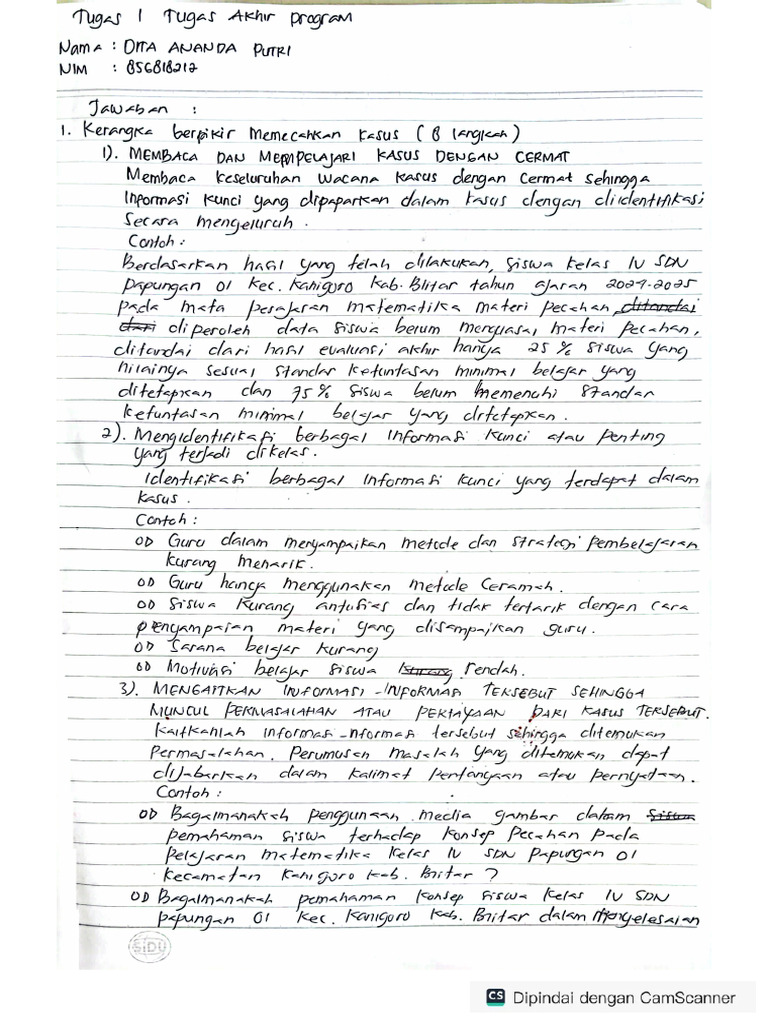 Tugas 1 Tugas Akhir program
Nama : DITA ANANDA PUTRI
NIM : 856818212
Jawaban :
1. Kerangka berpikir Memecahkan kasus (8 langkah)
1). MEMBACA DAN MEMPELAJARI KASUS DENGAN CERMAT
Membaca keseluruhan wacana kasus dengan cermat sehingga
Informasi kunci yang dipaparkan dalam kasus dengan diidentifikasi
Secara mengeluruh.
Contoh :
Berdasarkan hasil yang telah dilakukan, siswa kelas IV SDN
Papungan 01 kec. Kanigoro Kab. Blitar tahun ajaran 2024-2025
pada mata pesajaran matematika materi pecahan, ditandai
dari diperoleh data siswa belum menguasai materi pecahan,
ditandai dari hasil evaluasi akhir hanya 25 % siswa yang
nilainya sesuai standar ketuntasan minimal belajar yang
ditetapkan dan 75 % siswa belum memenuhi standar
ketuntasan minimal belajar yang ditetapkan.
2). Mengidentifikasi berbagai informasi kunci atau penting
yang terjadi dikelas.
Identifikasi berbagai informasi kunci yang terdapat dalam
kasus.
Contoh :
Guru dalam menyampaikan metode dan strategi pembelajaran
kurang menarik.
Guru hanya menggunakan metode ceramah.
Siswa kurang antusias dan tidak tertarik dengan cara
penyampaian materi yang disampaikan guru.
Sarana belajar kurang
Motivasi belajar siswa kurang rendah.
3). MENGAITKAN INFORMASI-INFORMASI TERSEBUT SEHINGGA
MUNCUL PERMASALAHAN ATAU PERTAYAAN DARI KASUS TERSEBUT.
Kaitkanlah informasi-informasi tersebut sehingga ditemukan
Permasalahan. Perumusan masalah yang ditemukan dapat
dijabarkan dalam kalimat pertanyaan atau pernyataan.
Contoh :
Bagaimanakah penggunaan media gambar dalam siswa
pemahaman siswa terhadap konsep pecahan pada
pelajaran matematika kelas IV SDN Papungan 01
kecamatan kanigoro kab. Blitar ?
Bagaimanakah pemahaman konsep siswa kelas IV SDN
papungan 01 kec. Kanigoro kab. Blitar dalam Menyelesaian
SIDU
CS Dipindai dengan CamScanner